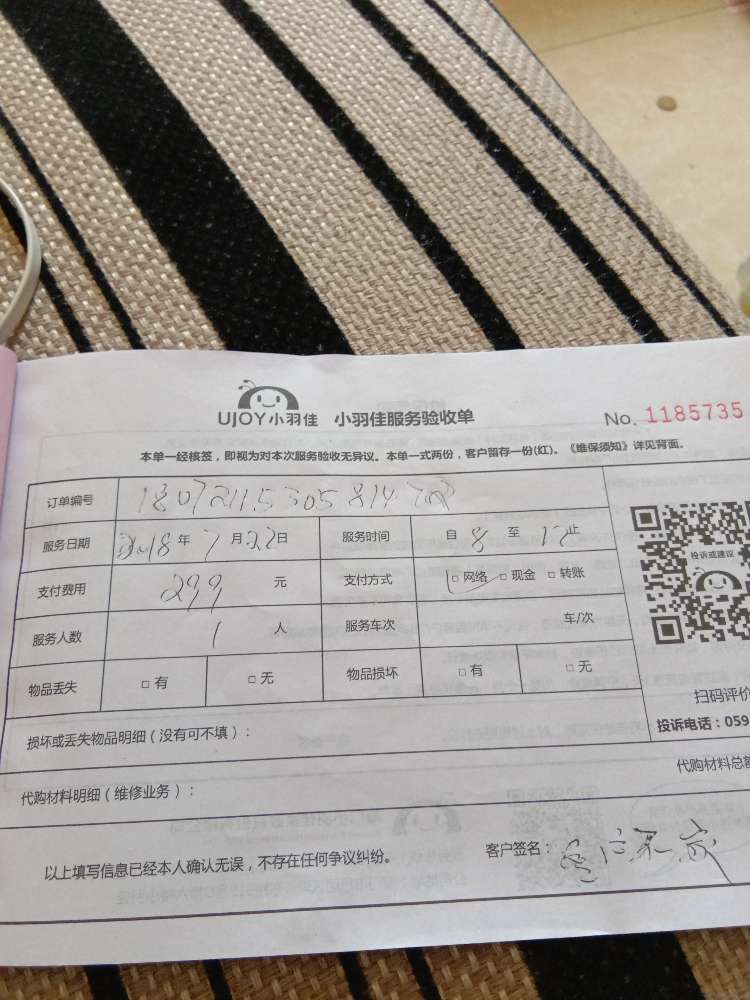 UJOY小羽佳 小羽佳服务验收单 No. 1185735
本单一经核签，即视为对本次服务验收无异议。本单一式两份，客户留存一份(红)。《维保须知》详见背面。
订单编号
服务日期 2018年7月22日 服务时间 自8至17止
支付费用 299 元 支付方式 □网络 □现金 □转账
服务人数 1 人 服务车次 车/次
物品丢失 □有 □无 物品损坏 □有 □无
投诉或建议
扫码评价
投诉电话：059
损坏或丢失物品明细（没有可不填）：
代购材料明细（维修业务）： 代购材料总额
以上填写信息已经本人确认无误，不存在任何争议纠纷。 客户签名：